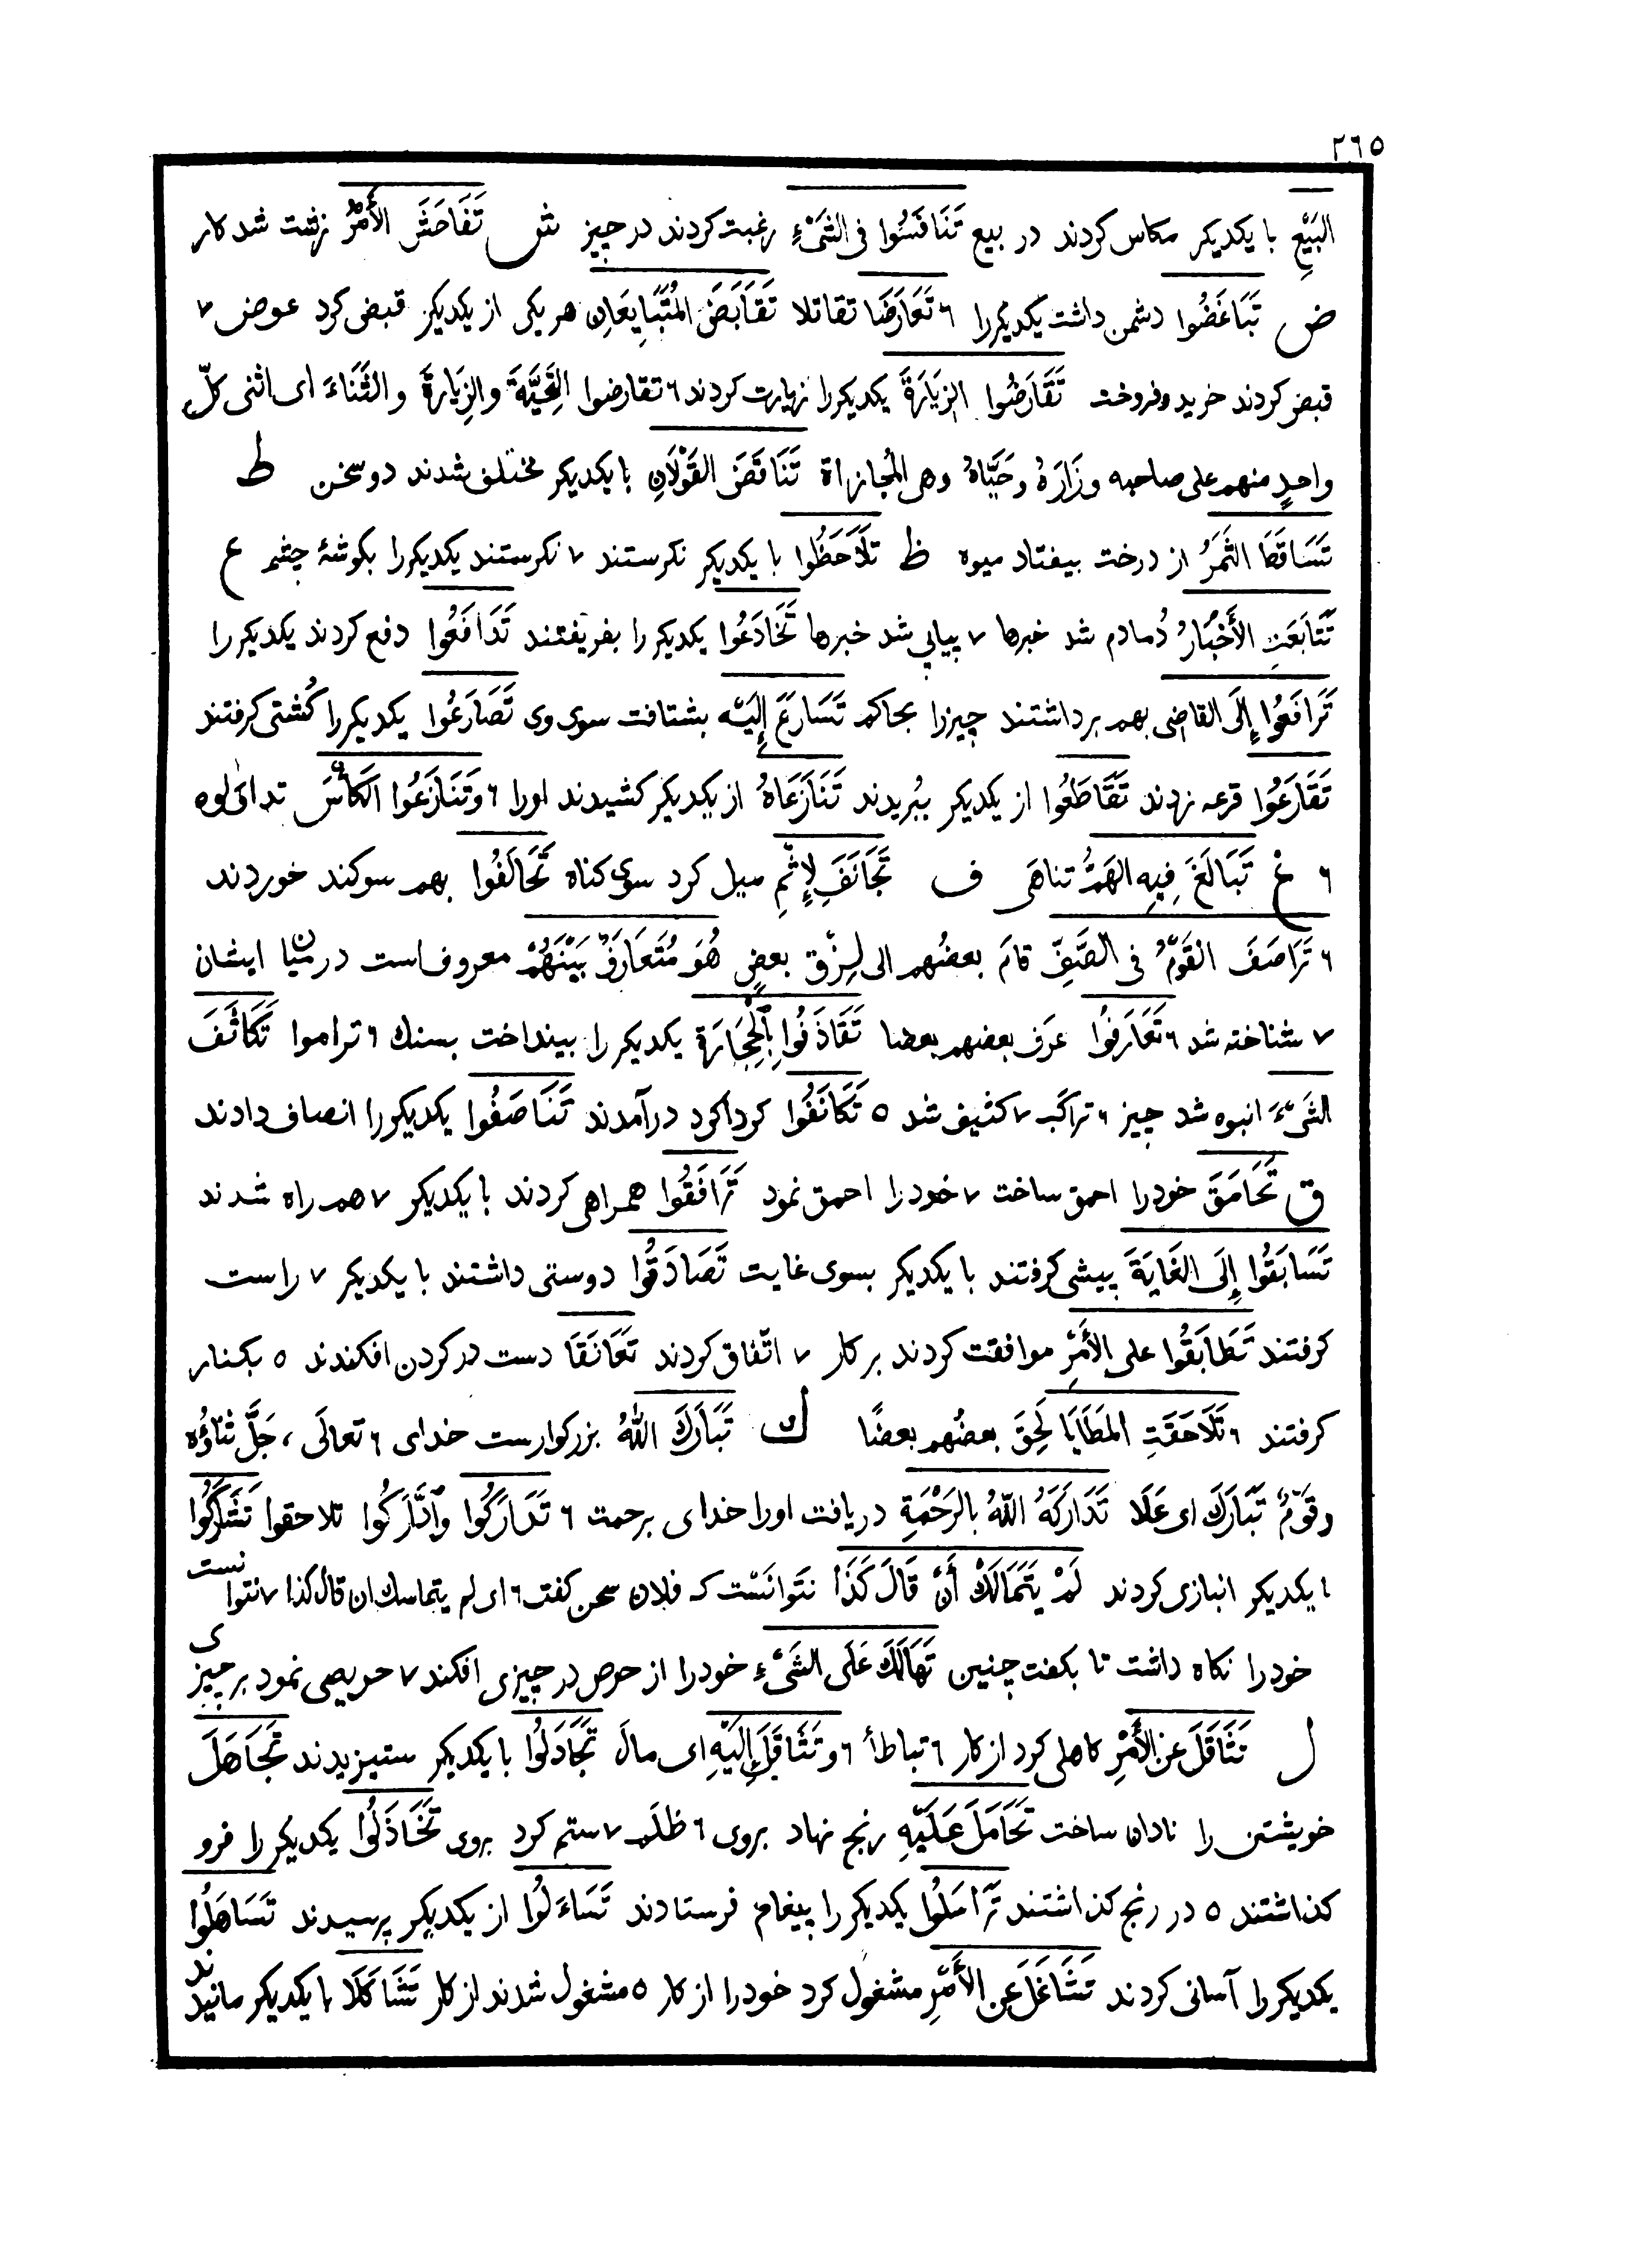 ٢٦٥
البَيْعِ با يكديكر مكاس كردند در بيع تَنَافَسُوا فى الشَىْءِ رغبت كردند در چيز ش تَفَاحَشَ الأَمْرُ زشت شد كار
ض تَبَاغَضُوا دشمن داشت يكديكررا ٦ تَعَارَضَا تقاتلا تَقَابَضَ المُتَبَايِعَانِ هر يكى از يكديكر قبض كرد عوض ٧
قبض كردند خريد وفروخت تَقَارَضُوا الزِيَارَةَ يكديكررا زيارت كردند ٦ تقارضوا التَحِيَّةَ والزِيَارةَ والثَنَاءَ اى اثنى كلّ
واحدٍ منهم على صاحبه وزَارَهُ وحَيَّاهُ وهى المُجازاة تَنَاقَضَ القَوْلَانِ با يكديكر مختلف شدند دو سخن ط
تَسَاقَطَ الثَمَرُ از درخت بيفتاد ميوه ظ تَلَاحَظُوا با يكديكر نكرستند ٧ نكرستند يكديكررا بكوشهٔ چشم ع
تَتَابَعَتِ الأَخْبَارُ دُمادم شد خبرها ٧ پياپى شد خبرها تَخَادَعُوا يكديكر را بفريفتند تَدَافَعُوا دفع كردند يكديكر را
تَرَافَعُوا إِلَى القاضى بهم برداشتند چيزرا بحاكم تَسَارَعَ إِلَيْهِ بشتافت سوى وى تَصَارَعُوا يكديكررا كُشتى كرفتند
تَقَارَعُوا قرعه زدند تَقَاطَعُوا از يكديكر ببُريدند تَنَازَعَاهُ از يكديكر كشيدند اورا ٦ وتَنَازَعُوا الكَأْسَ تداولوه
٦ غ تَبَالَغَ فِيهِ الهَمُّ تناهَى ف تَجَانَفَ لِإِثْمِ ميل كرد سوى كناه تَحَالَفُوا بهم سوكند خوردند
٦ تَرَاصَفَ القَوْمُ فى الصَّفِّ قامَ بعضُهم الى لِزْق بعضٍ هُوَ مُتَعَارَفٌ بَيْنَهُمْ معروف است در ميان ايشان
٧ شناخته شد ٦ تَعَارَفُوا عَرَف بعضهم بعضا تَقَاذَفُوا بِٱلْحِجَارَةِ يكديكر را بينداخت بسنك ٦ تراموا تَكَاثَفَ
الشَىْءُ انبوه شد چيز ٦ تراكَب ٧ كثيف شد ٥ تَكَانَفُوا كرداكرد درآمدند تَنَاصَفُوا يكديكر را انصاف دادند
ق تَحَامَقَ خودرا احمق ساخت ٧ خودرا احمق نمود تَرَافَقُوا همراهى كردند با يكديكر ٧ هم راه شدند
تَسَابَقُوا إِلَى الغَايَةِ پيشى كرفتند با يكديكر بسوى غايت تَصَادَقُوا دوستى داشتند با يكديكر ٧ راست
كرفتند تَطَابَقُوا على الأَمْرِ موافقت كردند بر كار ٧ اتّفاق كردند تَعَانَقَا دست در كردن افكندند ٥ بكنار
كرفتند ٦ تَلَاحَقَتِ المَطَايَا لَحِقَ بعضُهم بعضًا ك تَبَارَكَ اللهُ بزركوارست خداى ٦ تعالَى، جَلَّ ثناؤُه
وقَوْمٌ تَبَارَكَ اى عَلَا تَدَارَكَهُ اللهُ بالرَحْمَةِ دريافت اورا خداى برحمت ٦ تَدَارَكُوا وٱدَّارَكُوا تلاحقوا تَشَارَكُوا
با يكديكر انبازى كردند لَمْ يَتَمَالَكْ أَنْ قَالَ كَذَا نتوانست كه فلان سخن كفت ٦ اى لم يتماسك ان قال كذا ٧ نتوانست
خودرا نكاه داشت تا بكفت چنين تَهَالَكَ عَلَى الشَىْءِ خودرا از حرص در چيزى افكند ٧ حريصى نمود بر چيزى
ل تَثَاقَلَ عن الأَمْرِ كاهلى كرد از كار ٦ تباطأ ٦ وتَثَاقَلَ إِلَيْهِ اى مالَ تَجَادَلُوا با يكديكر ستيزيدند تَجَاهَلَ
خويشتن را نادان ساخت تَحَامَلَ عَلَيْهِ رنج نهاد بروى ٦ ظلَم ٧ ستم كرد بروى تَخَاذَلُوا يكديكر را فرو
كذاشتند ٥ در رنج كذاشتند تَرَاسَلُوا يكديكر را پيغام فرستادند تَسَاءَلُوا از يكديكر پرسيدند تَسَاهَلُوا
يكديكر را آسانى كردند تَشَاغَلَ عن الأَمْرِ مشغول كرد خودرا از كار ٥ مشغول شدند از كار تَشَاكَلَا با يكديكر مانيدند